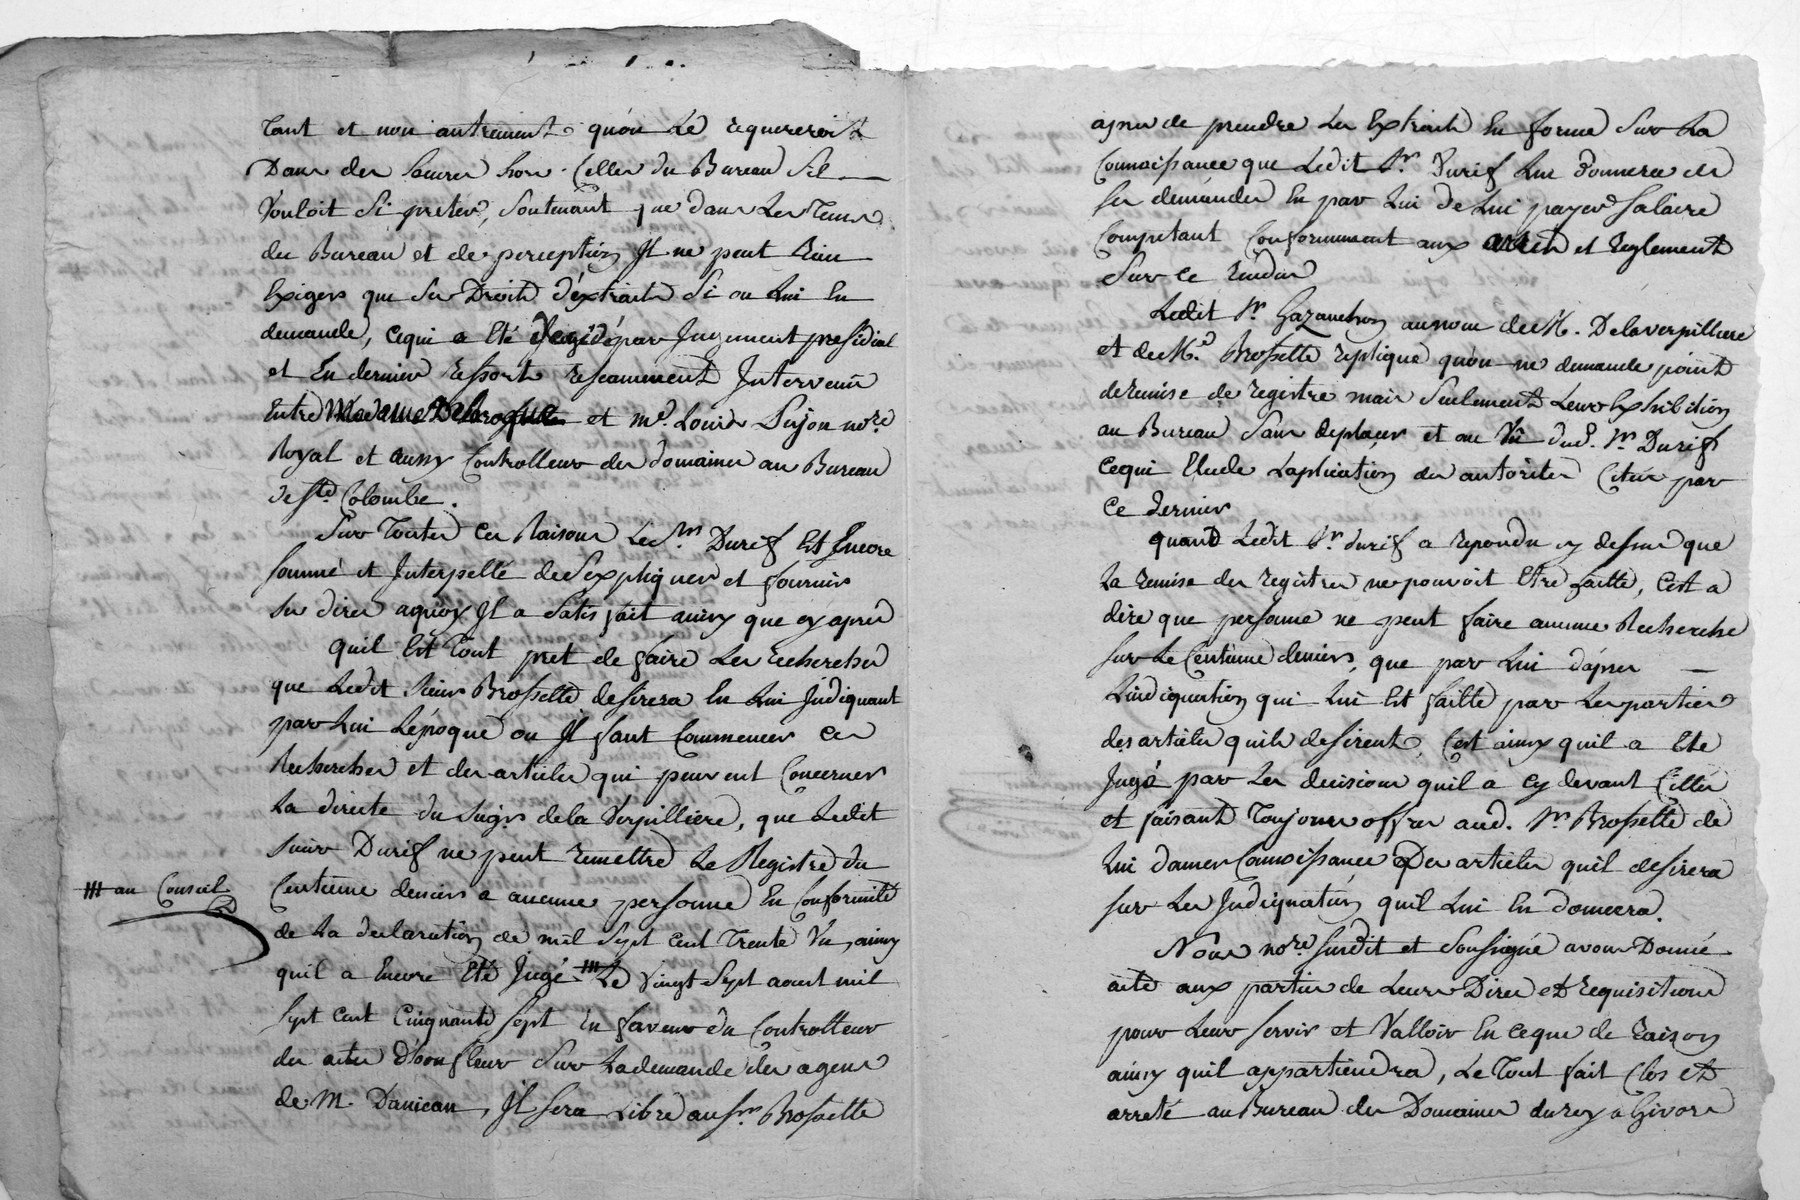 tant et non autrement qu'on Le requereroit
Dans des heures hors Celles du Bureau Sil
Vouloit Si preter, Soutenant que dans Les Tems
du Bureau et de perception Il ne peut Rien
Exiger que Ses Droits d'extraits Si on Lui En
demande, cequi a Eté par Jugement presidial
et En dernier Ressort réscamment Intervenu
Entre et me. Louis Sujon nore.
Royal et aussy Controlleur des domaines au Bureau
de Ste Colombe.
Sur Toutes Ces Raisons Led. Sr. Durif Est Encore
sommé et Interpellé de S'expliquer et fournir
Ses dires aquoy Il a Satisfait ainsy que cy après
quil Est Tout pret de faire Les recherches
que Ledit Sieur Brossette desirera En Lui Indiquant
par Lui L'époque ou Il faut Commencer Ces
Recherches et des articles qui peuvent Concerner
La directe du Seigr. de la Verpilliere, que Ledit
Sieur Durif ne peut remettre Le Registre du
Centieme deniers a aucune personne En Conformité
de La declaration de mil Sept cent Trente Un, ainsy
quil a Encore Eté Jugé Le Vingt Sept aoust mil
au Conseil
Sept cent Cinquante Sept En faveur du Controlleur
des actes D'honfleur Sur La demande des agens
de M. Danican, Il Sera Libre au Sr. Brossette
apres de prendre Les Extraits En forme Sur La
Connoissance que Ledit Sr. Durif Lui Donnera de
Ses demandes En par Lui de Lui payer Salaire
Competant Conformement aux et Reglement
Sur ce Rendus
Ledit Sr. Gazanchon au nom de M. Delaverpilliere
et de Mr. Brossette replique qu'on ne demande point
de remise de registre mais Seulement Leur Exhibition
au Bureau Sans deplacer et au Vû dud. Sr. Durif
Cequi Elude L'aplication des autorites Citées par
Ce dernier
quand Ledit Sr. durif a repondu cy dessus que
La remise des registres ne pouvoit Etre faitte, C'est a
dire que personne ne peut faire aucune Recherche
Sur Le Centieme deniers, que par Lui d'après
L'indiquation qui Lui Est faitte par Les parties
des articles quils desirent, C'est ainsy quil a Eté
Jugé par Les decisions quil a Cy devant Citter
et faisant Toujours offres aud. Sr. Brossette de
Lui donner Connoissance Des articles quil desirera
Sur Les Indiquations quil Lui En donnera.
Nous nore. Susdit et Soussigné avons Donné
acte aux parties de Leurs Dires et Requisitions
pour Leur Servir et Valloir En ceque de raison
ainsy quil appartiendra, Le Tout fait Clos et
arreté au Bureau des Domaines du roy a Givors